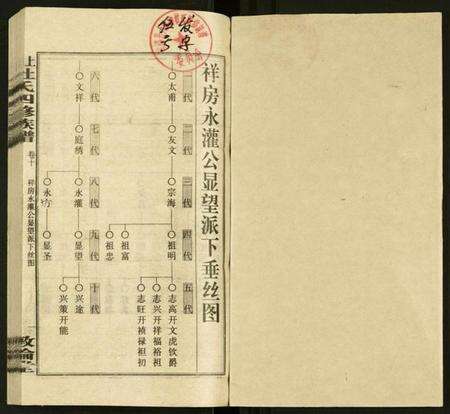 祥房永灌公显望派下垂丝图
一代
太甫
二代
友文
三代
宗海
四代
祖明
祖富
祖忠
五代
志高开文虎钦爵
志兴开祥福裕祖
志旺开祯禄袓初
六代
文祥
七代
庭绣
八代
永灌
九代
显望
显圣
十代
兴途
兴策开能
杜氏四修族谱
卷十
祥房永灌公显望派下丝图